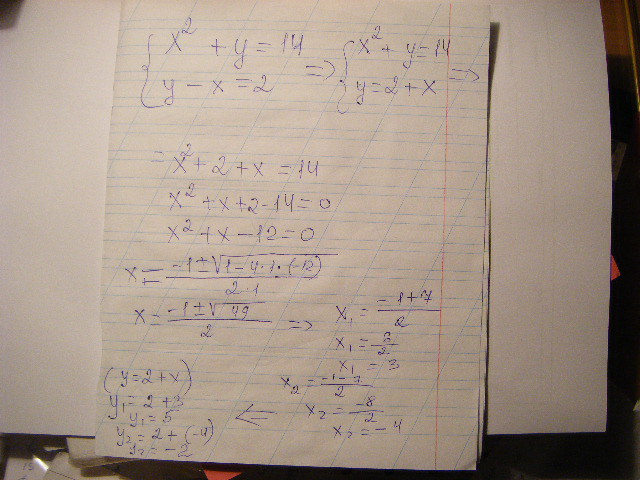 { x² + y = 14 => { x² + y = 14 =>
{ y - x = 2 { y = 2 + x
= x² + 2 + x = 14
x² + x + 2 - 14 = 0
x² + x - 12 = 0
x = (-1 ± √(1 - 4·1·(-12))) / (2·1)
x = (-1 ± √49) / 2 =>
x₁ = (-1 + 7) / 2
x₁ = 6/2
x₁ = 3
x₂ = (-1 - 7) / 2
x₂ = -8/2
x₂ = -4 <=
(y = 2 + x)
y₁ = 2 + 3
y₁ = 5
y₂ = 2 + (-4)
y₂ = -2